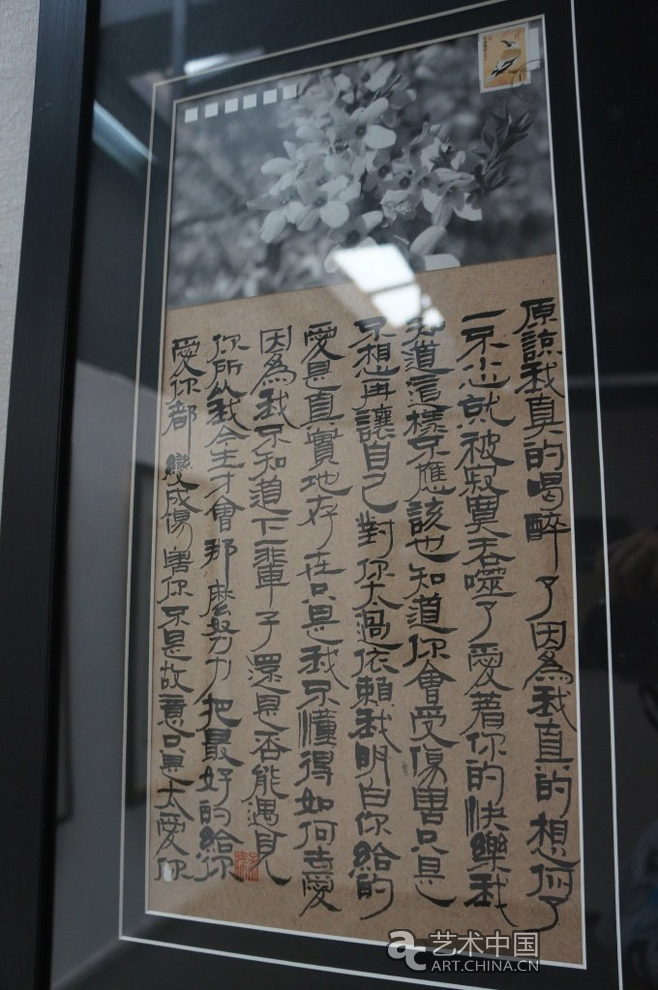 原諒我真的喝醉了因為我真的想你了
一不小心就被寂寞吞噬了愛着你的快樂我
知道這樣不應該也知道你會受傷害只是
不想再讓自己對你太過依賴我明白你給的
愛是真實地存在只是我不懂得如何去愛
因為我不知道下一輩子還是否能遇見
你所以我今生才會那麼努力把最好的給你
愛你都變成傷害你不是故意只是太愛你
艺术中国
ART.CHINA.CN